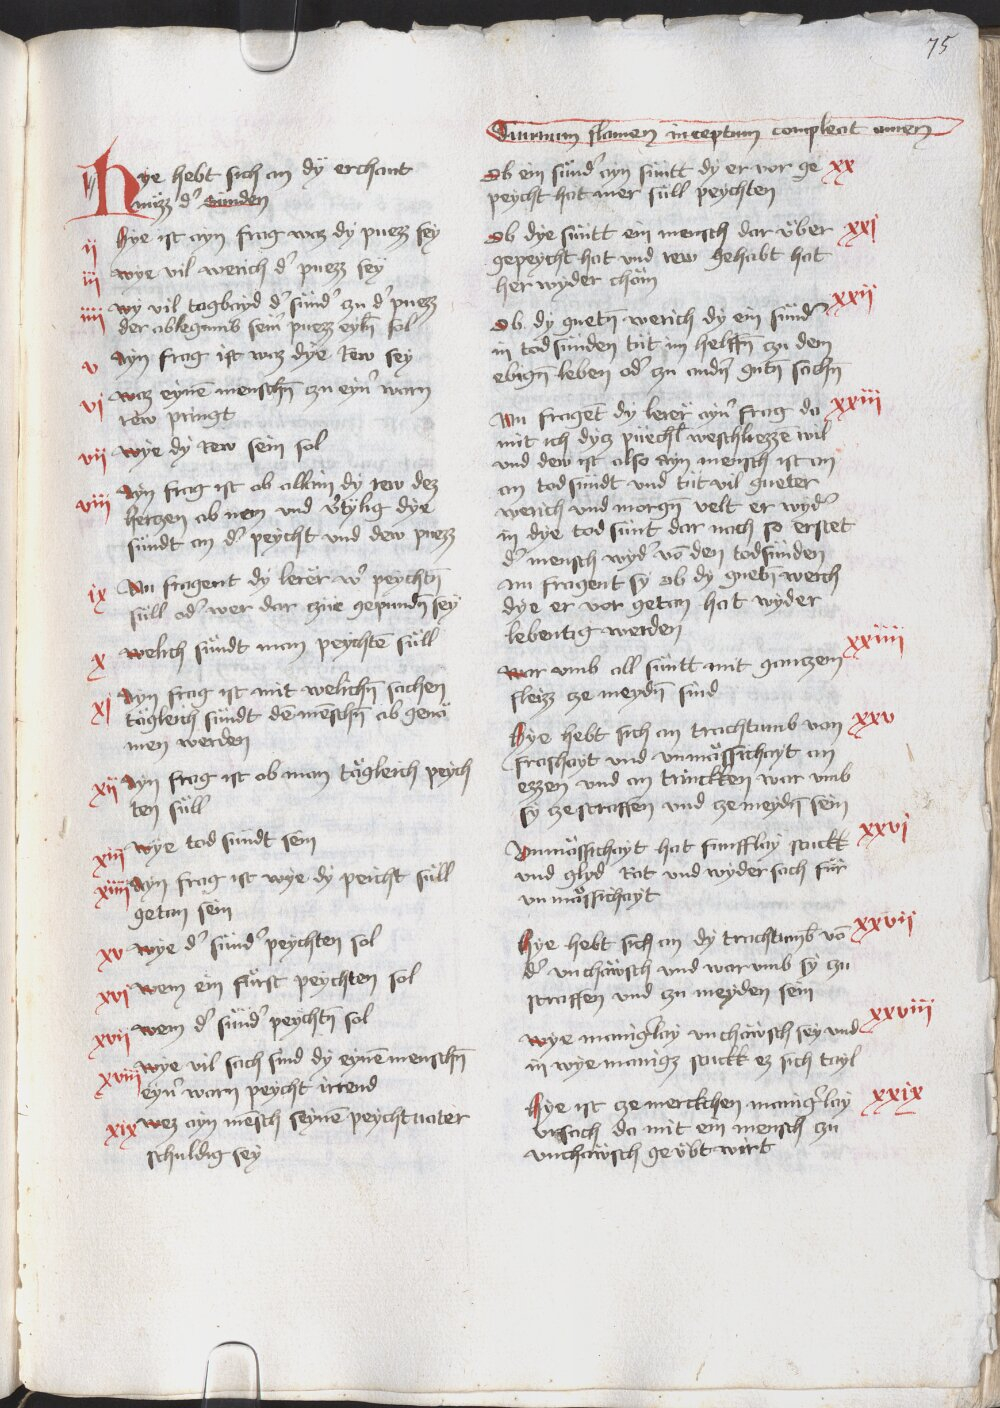 75
Diuinum flamen inceptum compleat amen
Hye hebt sich an dÿ erchant
nüzz d' sünden
ij Hye ist ayn frag waz dÿ puezz seÿ
iij wye vil werich d' puezz seÿ
iiij wy vil tagbayd d' sünd' zu d' puezz
der ablegumb sein' puezz eyln̄ sol
v Ayn frag ist waz dÿe Rew seÿ
vi waz eynē menschn̄ zu eyn' warn
rew pringt
vii wÿe dÿ Rew sein sol
viii Ayn frag ist ob allain dÿ rew dez
herczen ab nem vnd v'tylig dÿe
sündt an d' peÿcht vnd dew puezz
ix Nu fragent dÿ lerër w' peychtn̄
süll od' wer dar zue gepundn̄ seÿ
x welich sündt man peychtē süll
xi Ayn frag ist mit welichn̄ sachen
tägleich sündt dē mēschn̄ ab genö
men werden
xii Ayn frag ist ob man tägleich peych
ten süll
xiii wye tod sündt sein
xiiii Ayn frag ist wye dÿ peicht süll
getan sein
xv wÿe d' sünd' peÿchten sol
xvi wem ein fürst peÿchten sol
xvii wem d' sünd' peÿchtn̄ sol
xviii wÿe vil sach sind dÿ eynē menschn̄
eyn' warn peÿcht irrend
xix wez ayn mēsch seynē peÿchtuater
schuldig seÿ
Ob ein sünd' ayn süntt dÿ er vor ge xx
peycht hat mer süll peychten
Ob dÿe süntt ein mensch dar über xxi
gepeycht hat vnd rew gehabt hat
her wyder chöm
xxii
Ob dÿ guetn̄ werich dÿ ein sünd'
in tod sünden tüt im helffn̄ zu dem
ebign̄ leben od' zu andn̄ gutn̄ sachn̄
Nu fragēt dÿ lerër ayn' frag da xxiii
mit ich dÿz püechl weschliezzē wil
vnd dew ist also Ayn mensch ist an
an tod sündt vnd tüt vil gueter
werich vnd morgn̄ velt er wÿd'
in dÿe tod sünt dar nach so erstet
d' mensch wÿd' vō den todsünden
nu fragent sÿ ob dÿ guetn̄ werch
dÿe er vor getan hat wÿder
lebentig werden
xxiiii
war vmb all süntt mit ganczem
fleizz ze meydn̄ sind
Hye hebt sich an trachtumb von xxv
frashayt vnd vnmässichayt an
ezzen vnd an trinckken war vmb
sÿ ze straffen vnd ze meydn̄ sein
Vnmässichayt hat fümfflay stuckk xxvi
vnd glyd Rat vnd wyder sach für
vnmässichayt
Hye hebt sich an dÿ trachtumb vō xxvii
d' vnchäwsch vnd war vmb sÿ zu
straffen vnd zu meyden sein
xxviii
wye manig'lay vnchäwsch seÿ vnd
in wye manigz stuckk ez sich tayl
Hye ist ze merckchen manig'lay xxix
vrsach da mit ein mensch zu
vnchäwsch geübt wirt